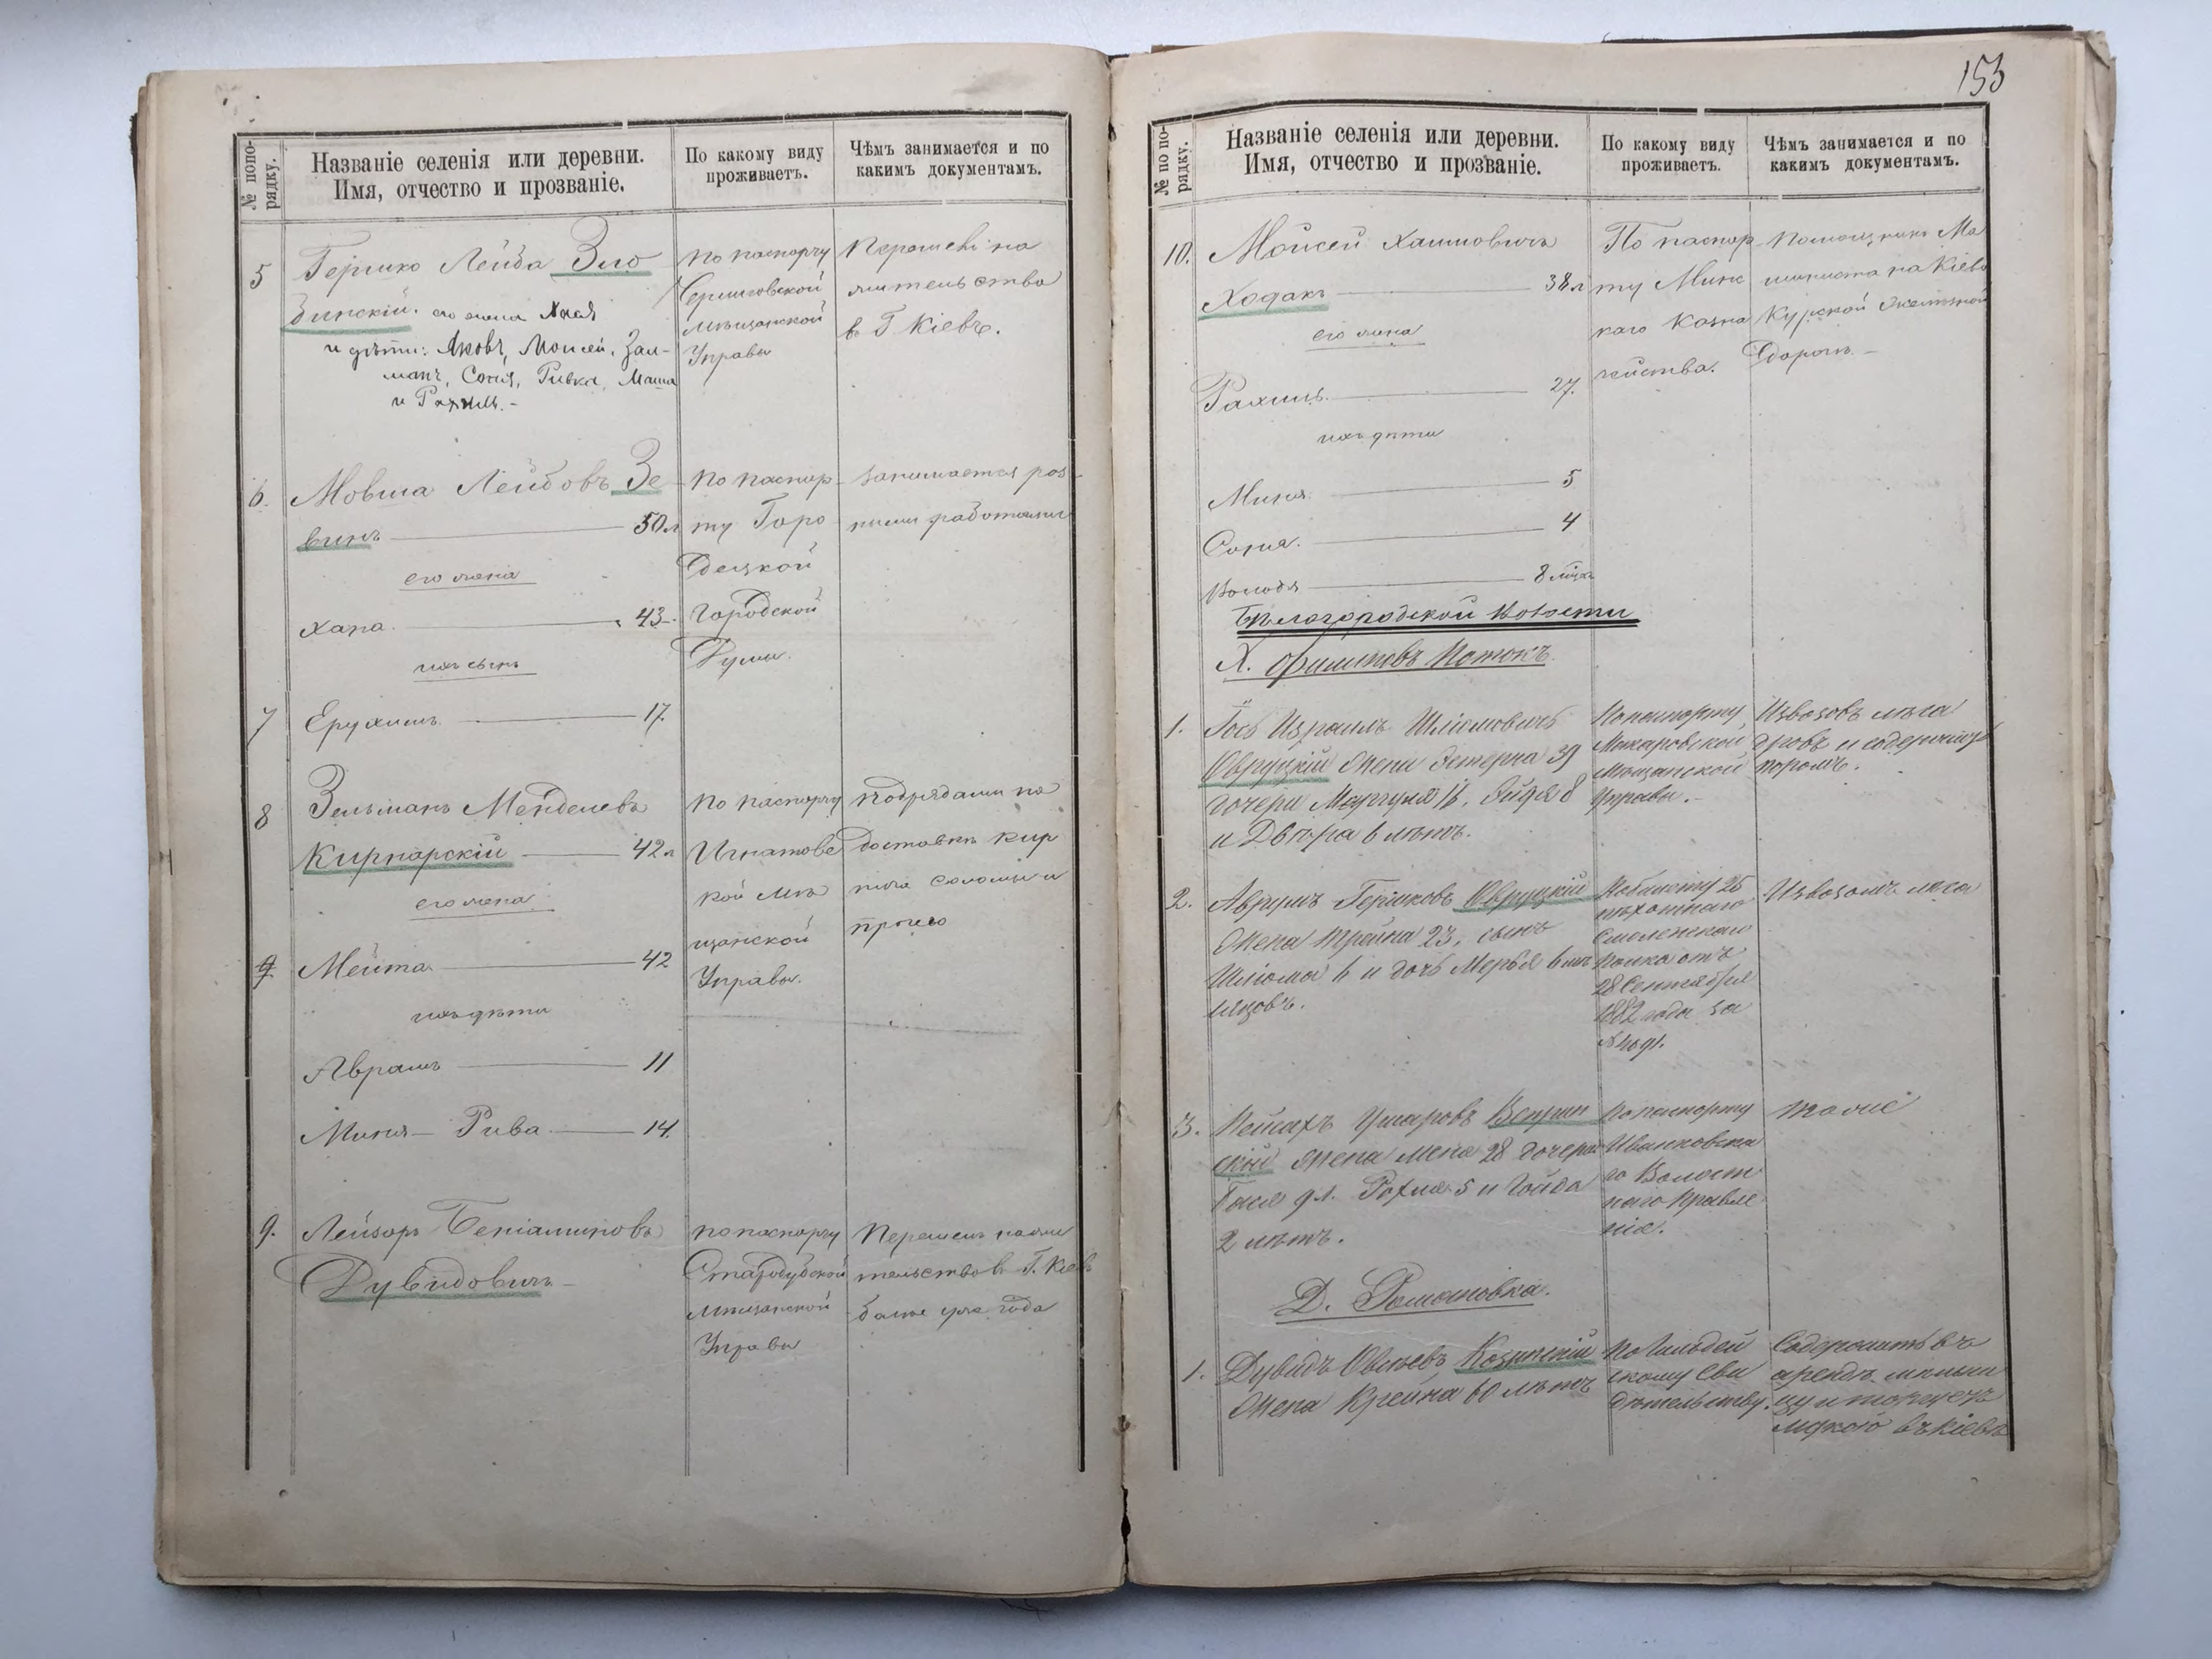 № попо-
рядку.
Названіе селенія или деревни.
Имя, отчество и прозваніе.
По какому виду
проживаетъ.
Чѣмъ занимается и по
какимъ документамъ.
5
Гершко Лейба Зло
бинскій. его жена Хая
и дѣти: Яковъ, Моисей, Зал-
манъ, Соня, Ривка, Маша
и Рахиль.-
по паспорту
Черниговской
мѣщанской
Управы
Перешелъ на
жительство
в Г Кіевъ.
6.
Мовша Лейбовъ Зе
винъ 50 л
его жена
Хана. 43.
ихъ сынъ
по паспор
ту Горо
децкой
городской
Думы.
занимается раз
ными работами
7
Ерухимъ 17.
8
Зельманъ Менделевъ
Кирпарскій 42 л
его жена
по паспорту
Игнатовс
кой Мѣ
щанской
Управы.
подрядами на
доставкѣ кир
пича соломы и
прочего
9
Мейта 42
ихъ дѣти
Аврамъ 11
Миня - Рива 14.
9.
Лейзоръ Беніаминовъ
Дувидовичъ -
по паспорту
Стародубской
мѣщанской
Управы
Перешелъ на жи
тельство в Г. Кіевъ
болѣе уже года
153
№ по по-
рядку.
Названіе селенія или деревни.
Имя, отчество и прозваніе.
По какому виду
проживаетъ.
Чѣмъ занимается и по
какимъ документамъ.
10.
Мойсей Хаимовичъ
Ходакъ 38 л
его жена
Рахиль 27.
ихъ дѣти
Миня 5
Соня. 4
Володя 8 мѣся
По паспор
ту Минс
каго Казна
чейства.
Помощникъ Ма
шиниста на Кіево
Курской Желѣзной
Дорогѣ. -
Бѣлогородской Волости
Х. Филиповъ Потокъ.
1.
Іось Израиль Шліомовичъ
Овруцкій жена Эстерна 39
дочери Маргуля 16, Эйдля 8
и Двейра 6 лѣтъ.
По паспорту
Макаровской
Мѣщанской
Управы. -
Извозовъ лѣса
дровъ и содержитъ
поромъ.
2.
Аврумъ Гершковъ Овруцкій
Жена Трейна 23, сынъ
Шліома 6 и дочь Мерья 6 мѣ
сяцовъ.
По билету 25
пѣхотнаго
Смоленскаго
полка отъ
28 Сентября
1882 года за
№ 4091.
Извозомъ лѣса
3.
Пейсахъ Ушаровъ
жена 28 дочери
5 и
2 лѣтъ.
По паспорту
Иванковска
го Волост
наго Правле
нія.
тоже
Д. Романовка.
1.
Дувидъ Овсѣевъ Козинскій
Жена Крейна 60 лѣтъ
По Гильдей
скому Сви
дѣтельству.
Содержитъ въ
арендѣ мельни
цу и торгуетъ
мукою въ Кіевѣ